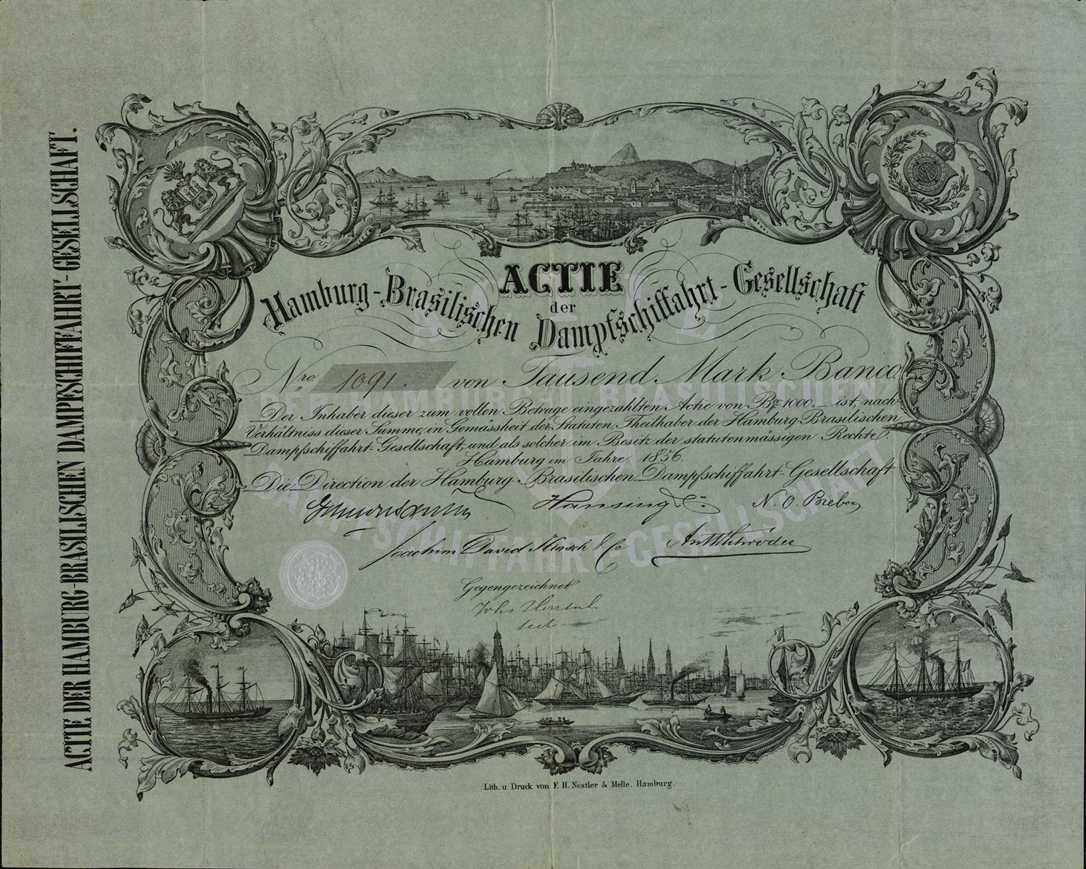 ACTIE DER HAMBURG-BRASILISCHEN DAMPFSCHIFFAHRT-GESELLSCHAFT.
ACTIE
der
Hamburg-Brasilischen Dampfschiffahrt-Gesellschaft
Nro 1091. von Tausend Mark Banco
Der Inhaber dieser zum vollen Betrage eingezahlten Actie von Bco 1000 ist, nach
Verhältniss dieser Summe, in Gemässheit der Statuten Theilhaber der Hamburg-Brasilischen
Dampfschiffahrt-Gesellschaft, und als solcher im Besitz der statutenmässigen Rechte.
Hamburg im Jahre 1856.
Die Direction der Hamburg-Brasilischen Dampfschiffahrt-Gesellschaft
Hansing
Joachim David Hinsch & Co
Gegengezeichnet
DER HAMBURG BRASILISCHEN
DAMPFSCHIFFAHRT GESELLSCHAFT
Lith. u. Druck von F. H. Nestler & Melle, Hamburg.